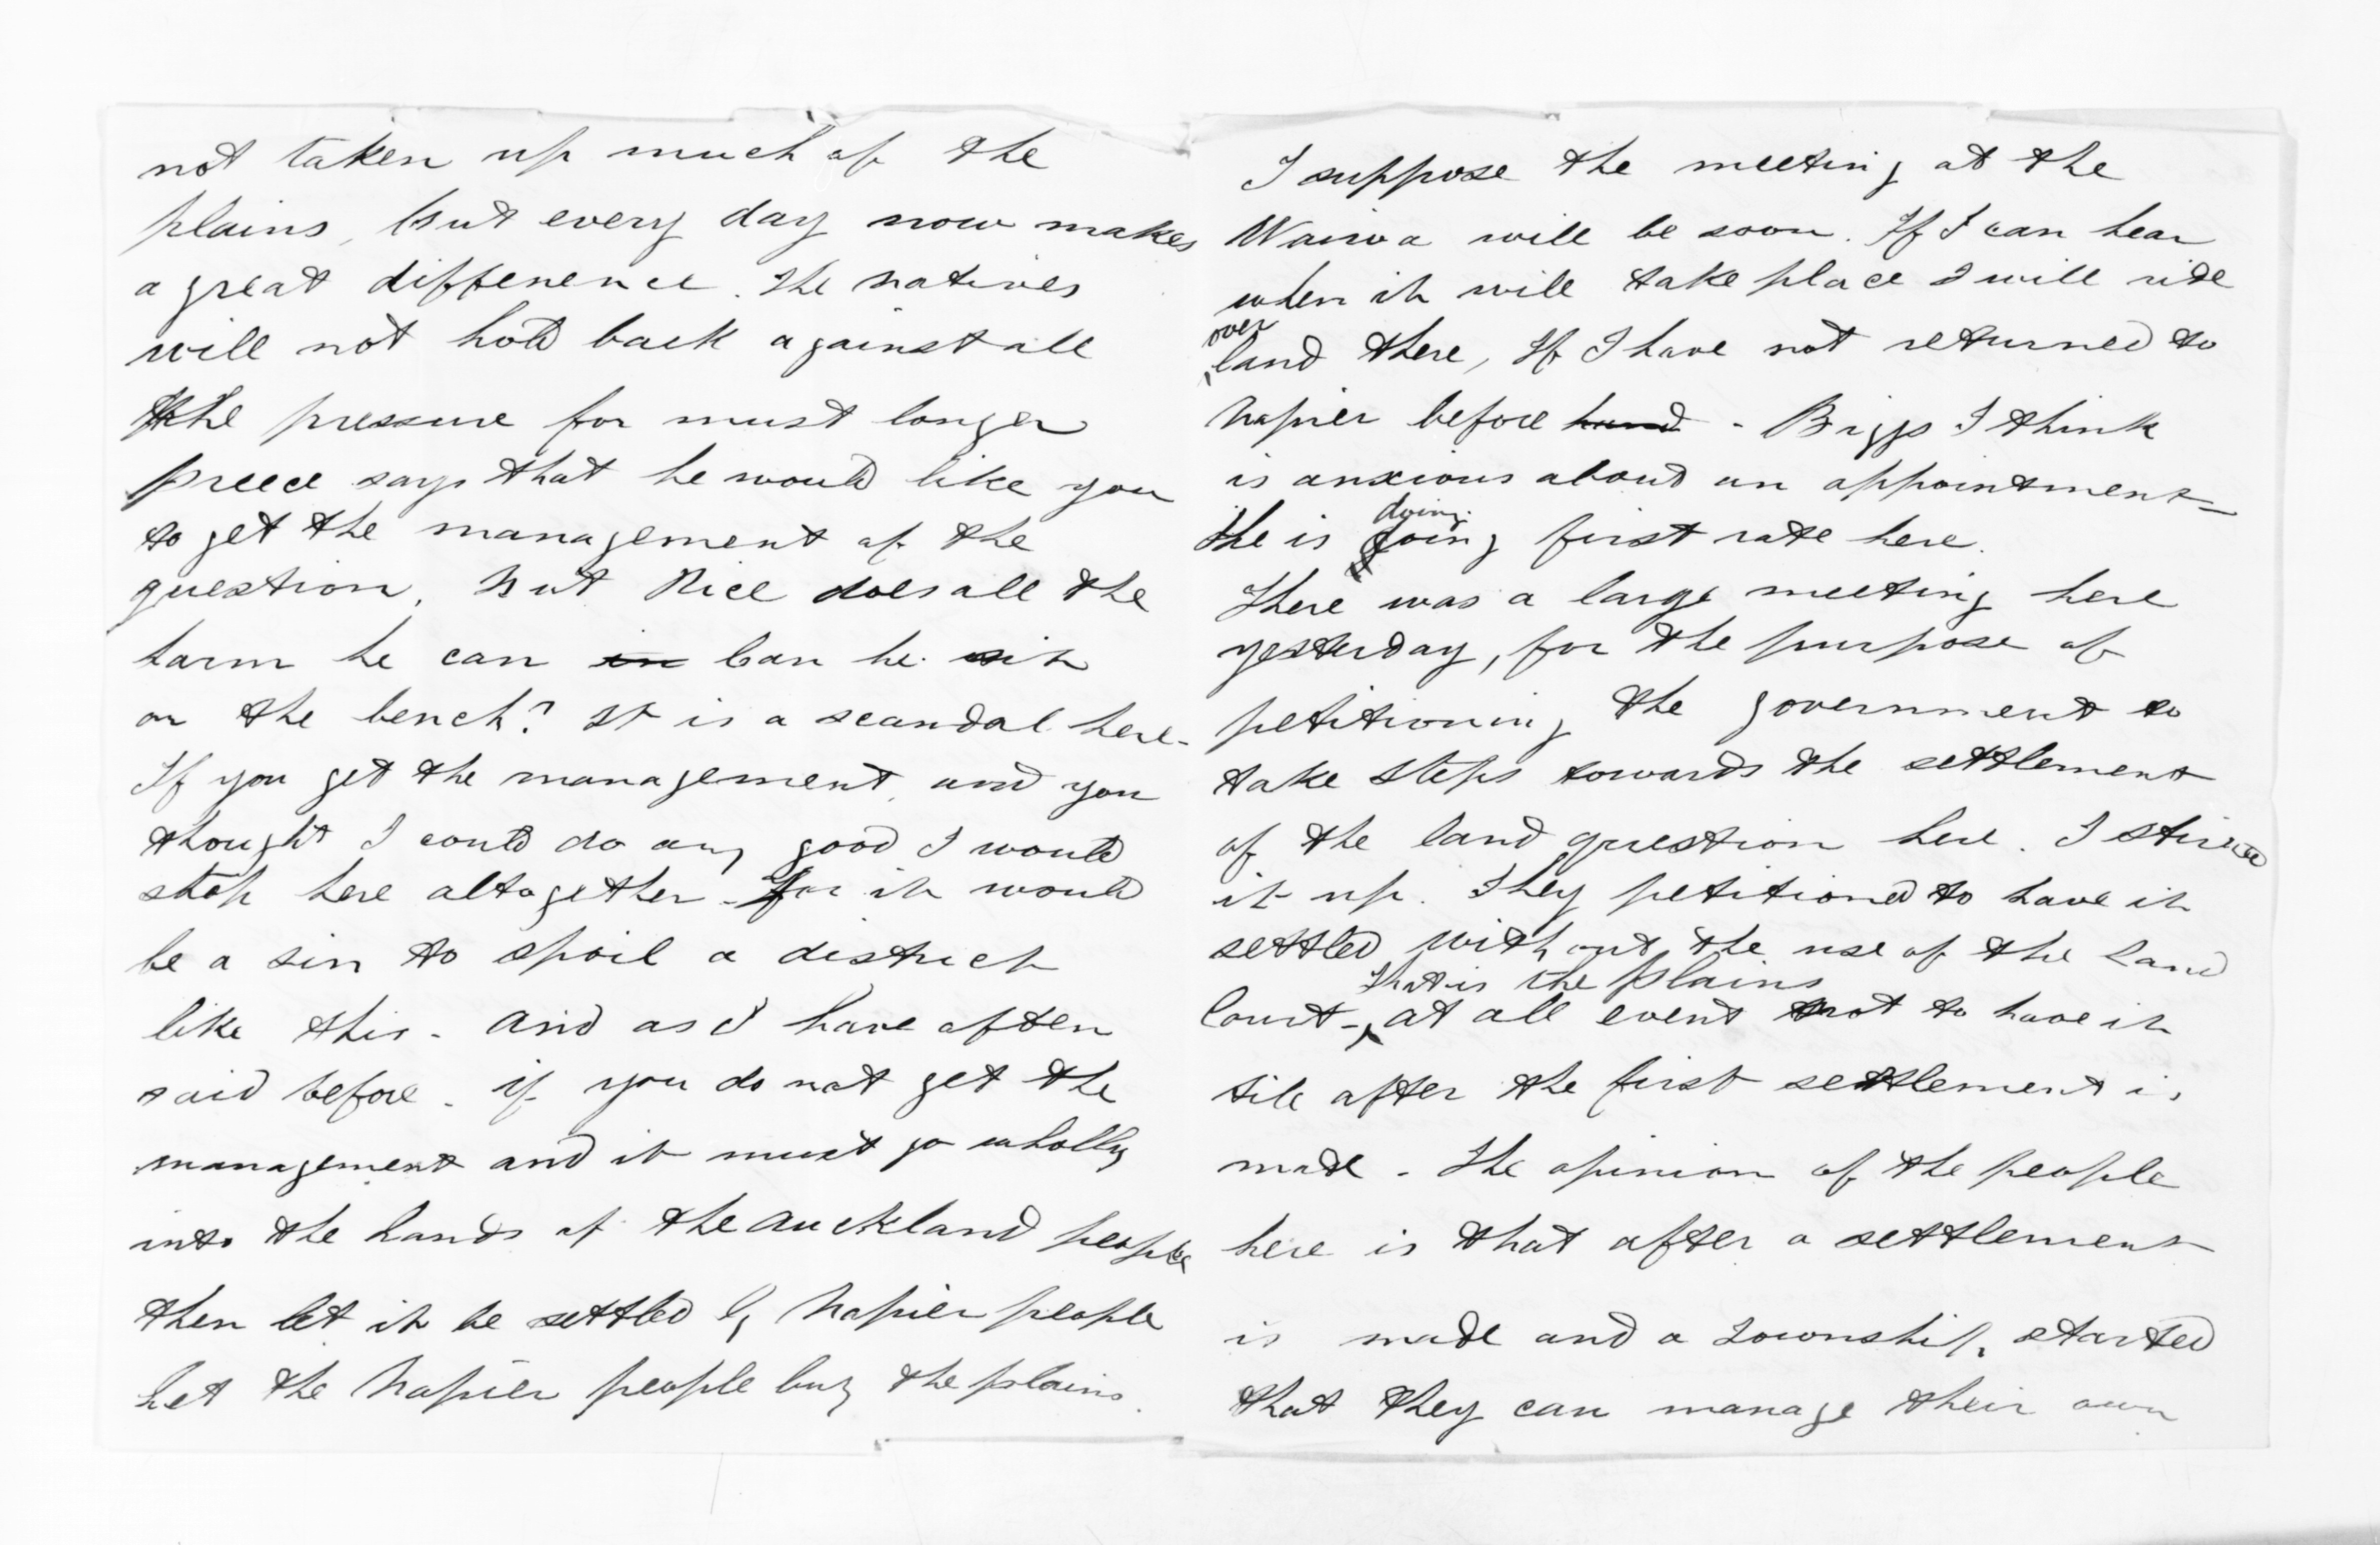 not taken up much of the
plains, but every day now makes
a great difference. The natives
will not hold back against all
the pressure for must longer
Preece says that he would like you
to get the management of the
question, but Rice does all the
harm he can in Can he sit
on the bench? It is a scandal here-
If you get the management, and you
thought I could do any good I would
stop here altogether - for it would
be a sin to spoil a district
like this - and as I have often
said before - if you do not get the
management and it must go wholly
into the hands of the Auckland people
then let it be settled by Napier people
Let the Napier people buy the plains.
I suppose the meeting at the
Wairoa will be soon. If I can hear
when it will take place I will ride
over
land there, If I have not returned to
Napier before hand - Biggs I think
is anxious about an appointment -
He is doing
going first rate here.
There was a large meeting here
yesterday, for the purpose of
petitioning the government to
take steps towards the settlement
of the land question here. I stirred
it up. They petitioned to have it
settled without the use of the Land
that is the plains
Court - at all event not to have it
till after the first settlement is
made - The opinion of the people
here is that after a settlement
is made and a township started
that they can manage their own